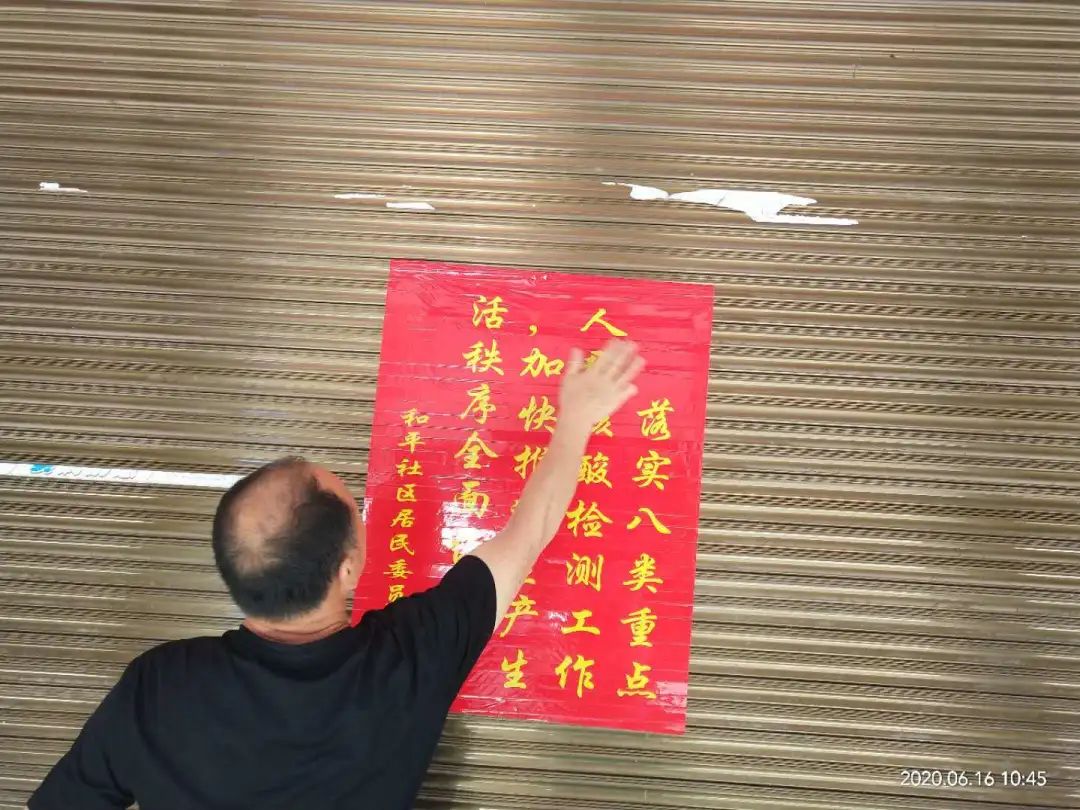 落实八类重点
人 酸检测工作
,加快推 产生
活秩序全面
和平社区居民委员
2020.06.16 10:45